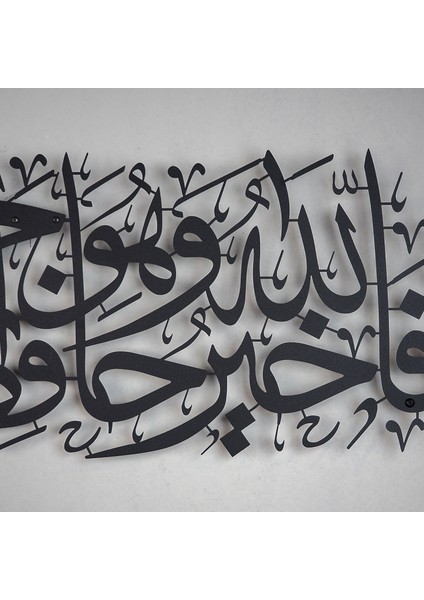 فالله خير حافظا وهو